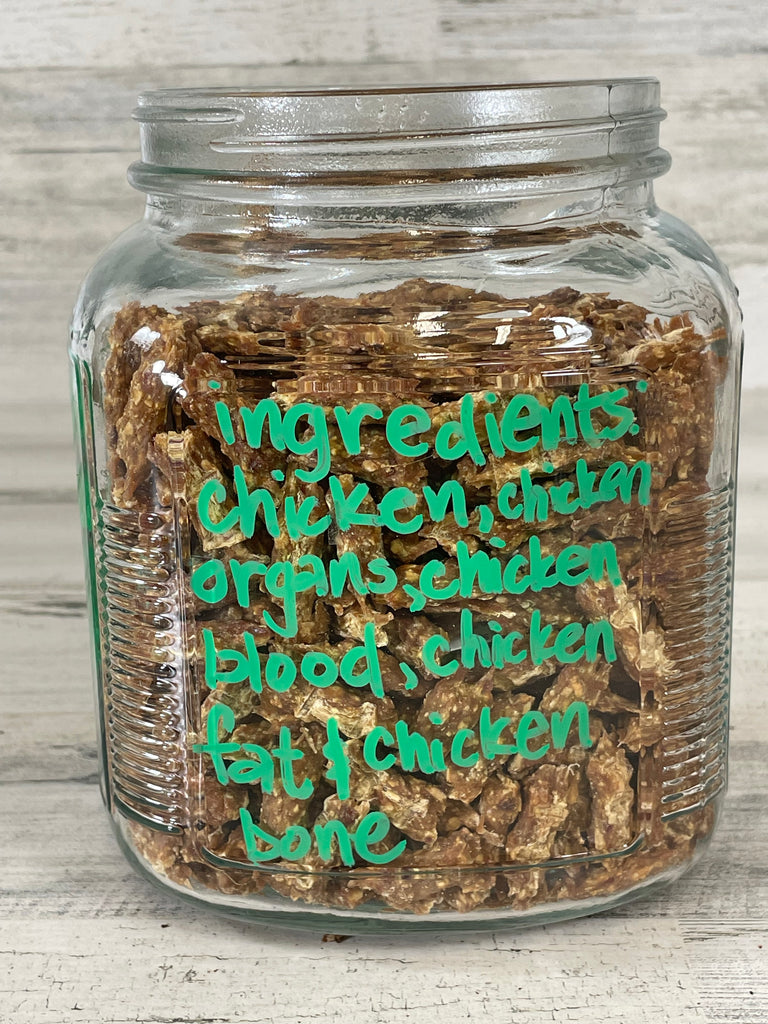 ingredients:
chicken, chicken
organs, chicken
blood, chicken
fat & chicken
bone